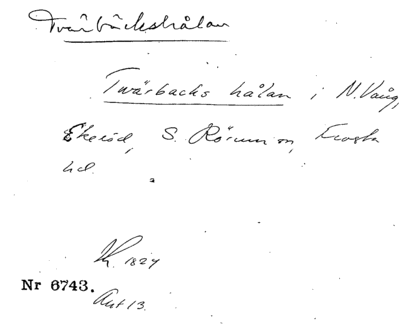 Tvärbäckshålan
Twärbacks hålan i N. Vång,
Ekeröd, S. Rörum sn, Frosta
hd.
1827
Nr 6743.
Akt 13.